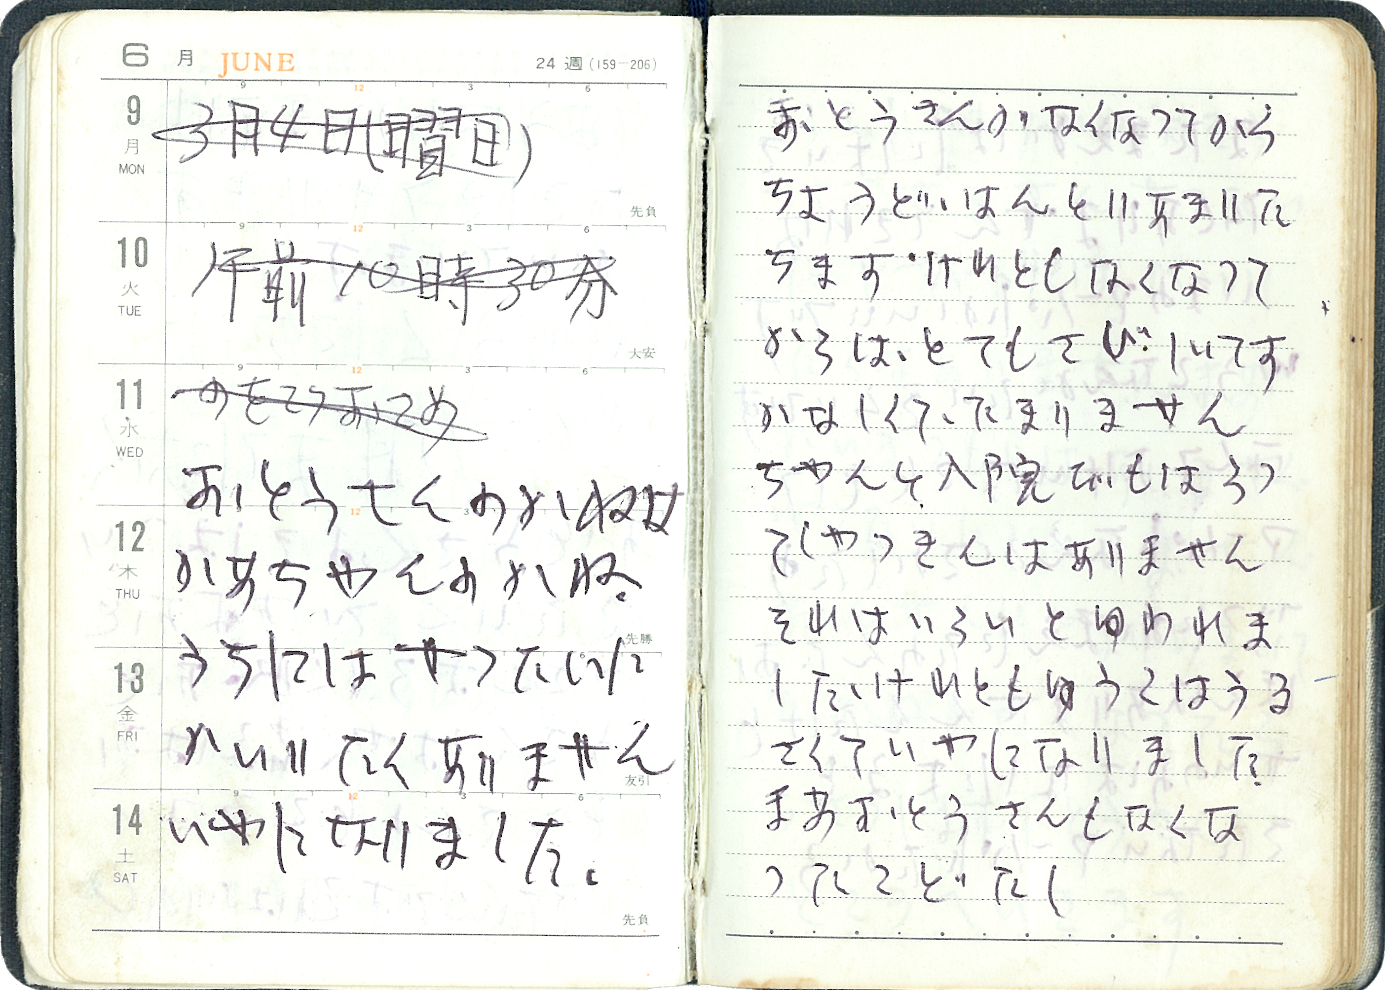 6 月 JUNE 24 週 (159－206)
9 月 MON
3月4日(曜日)
先負
10 火 TUE
午前10時30分
大安
11 水 WED
おとうさんのかねは
12 木 THU
かあちやんのかね。
先勝
うちにはやつたいに
13 金 FRI
かいりたくありません
友引
14 土 SAT
いやになりました。
先負
おとうさんがなくなつてから
ちようどいはんとりあまりた
ちます。けれともなくなつて
からは、とてもさびしいてす
かなしくて、たまりません
ちやんと入院でもはらつ
てしやつきんはありません
それはいろいとゆわれま
したけれともゆうこはうる
さくていやになりました。
まあおとうさんもなくな
つたことだし